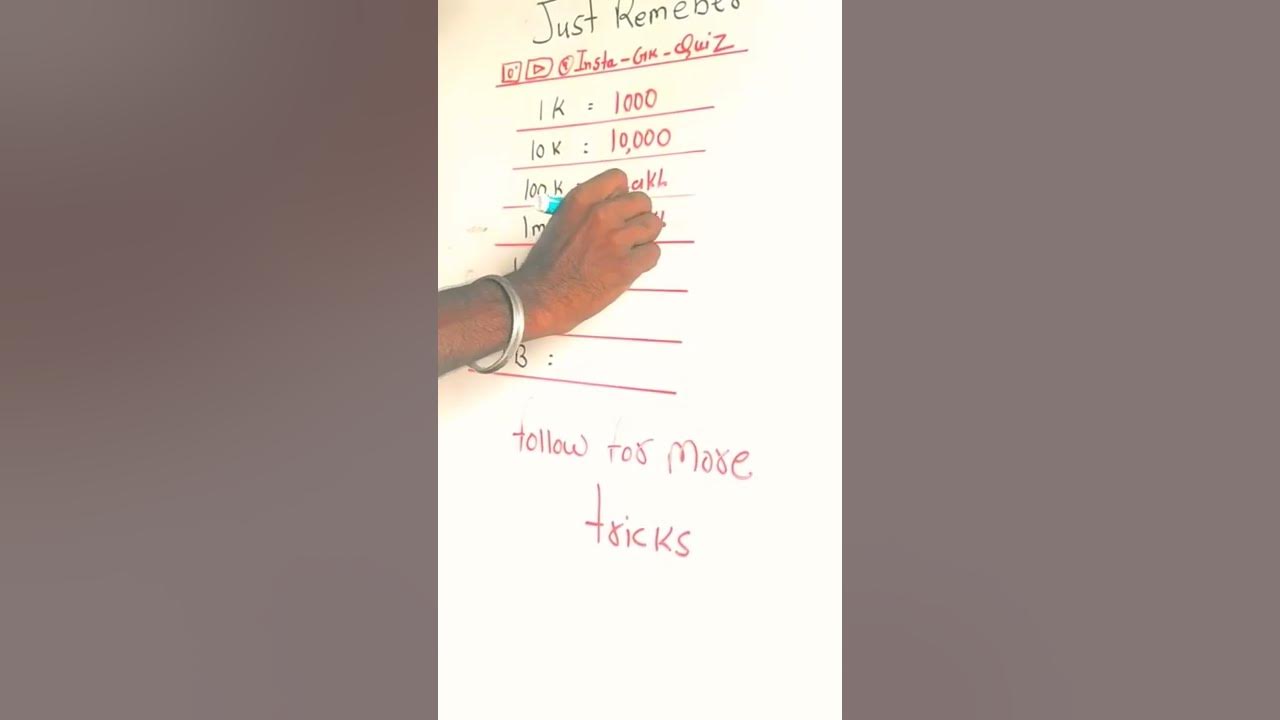 Just Remeber
Insta-GK-Quiz
1K = 1000
10K : 10,000
100K
1m
B :
follow for more
tricks